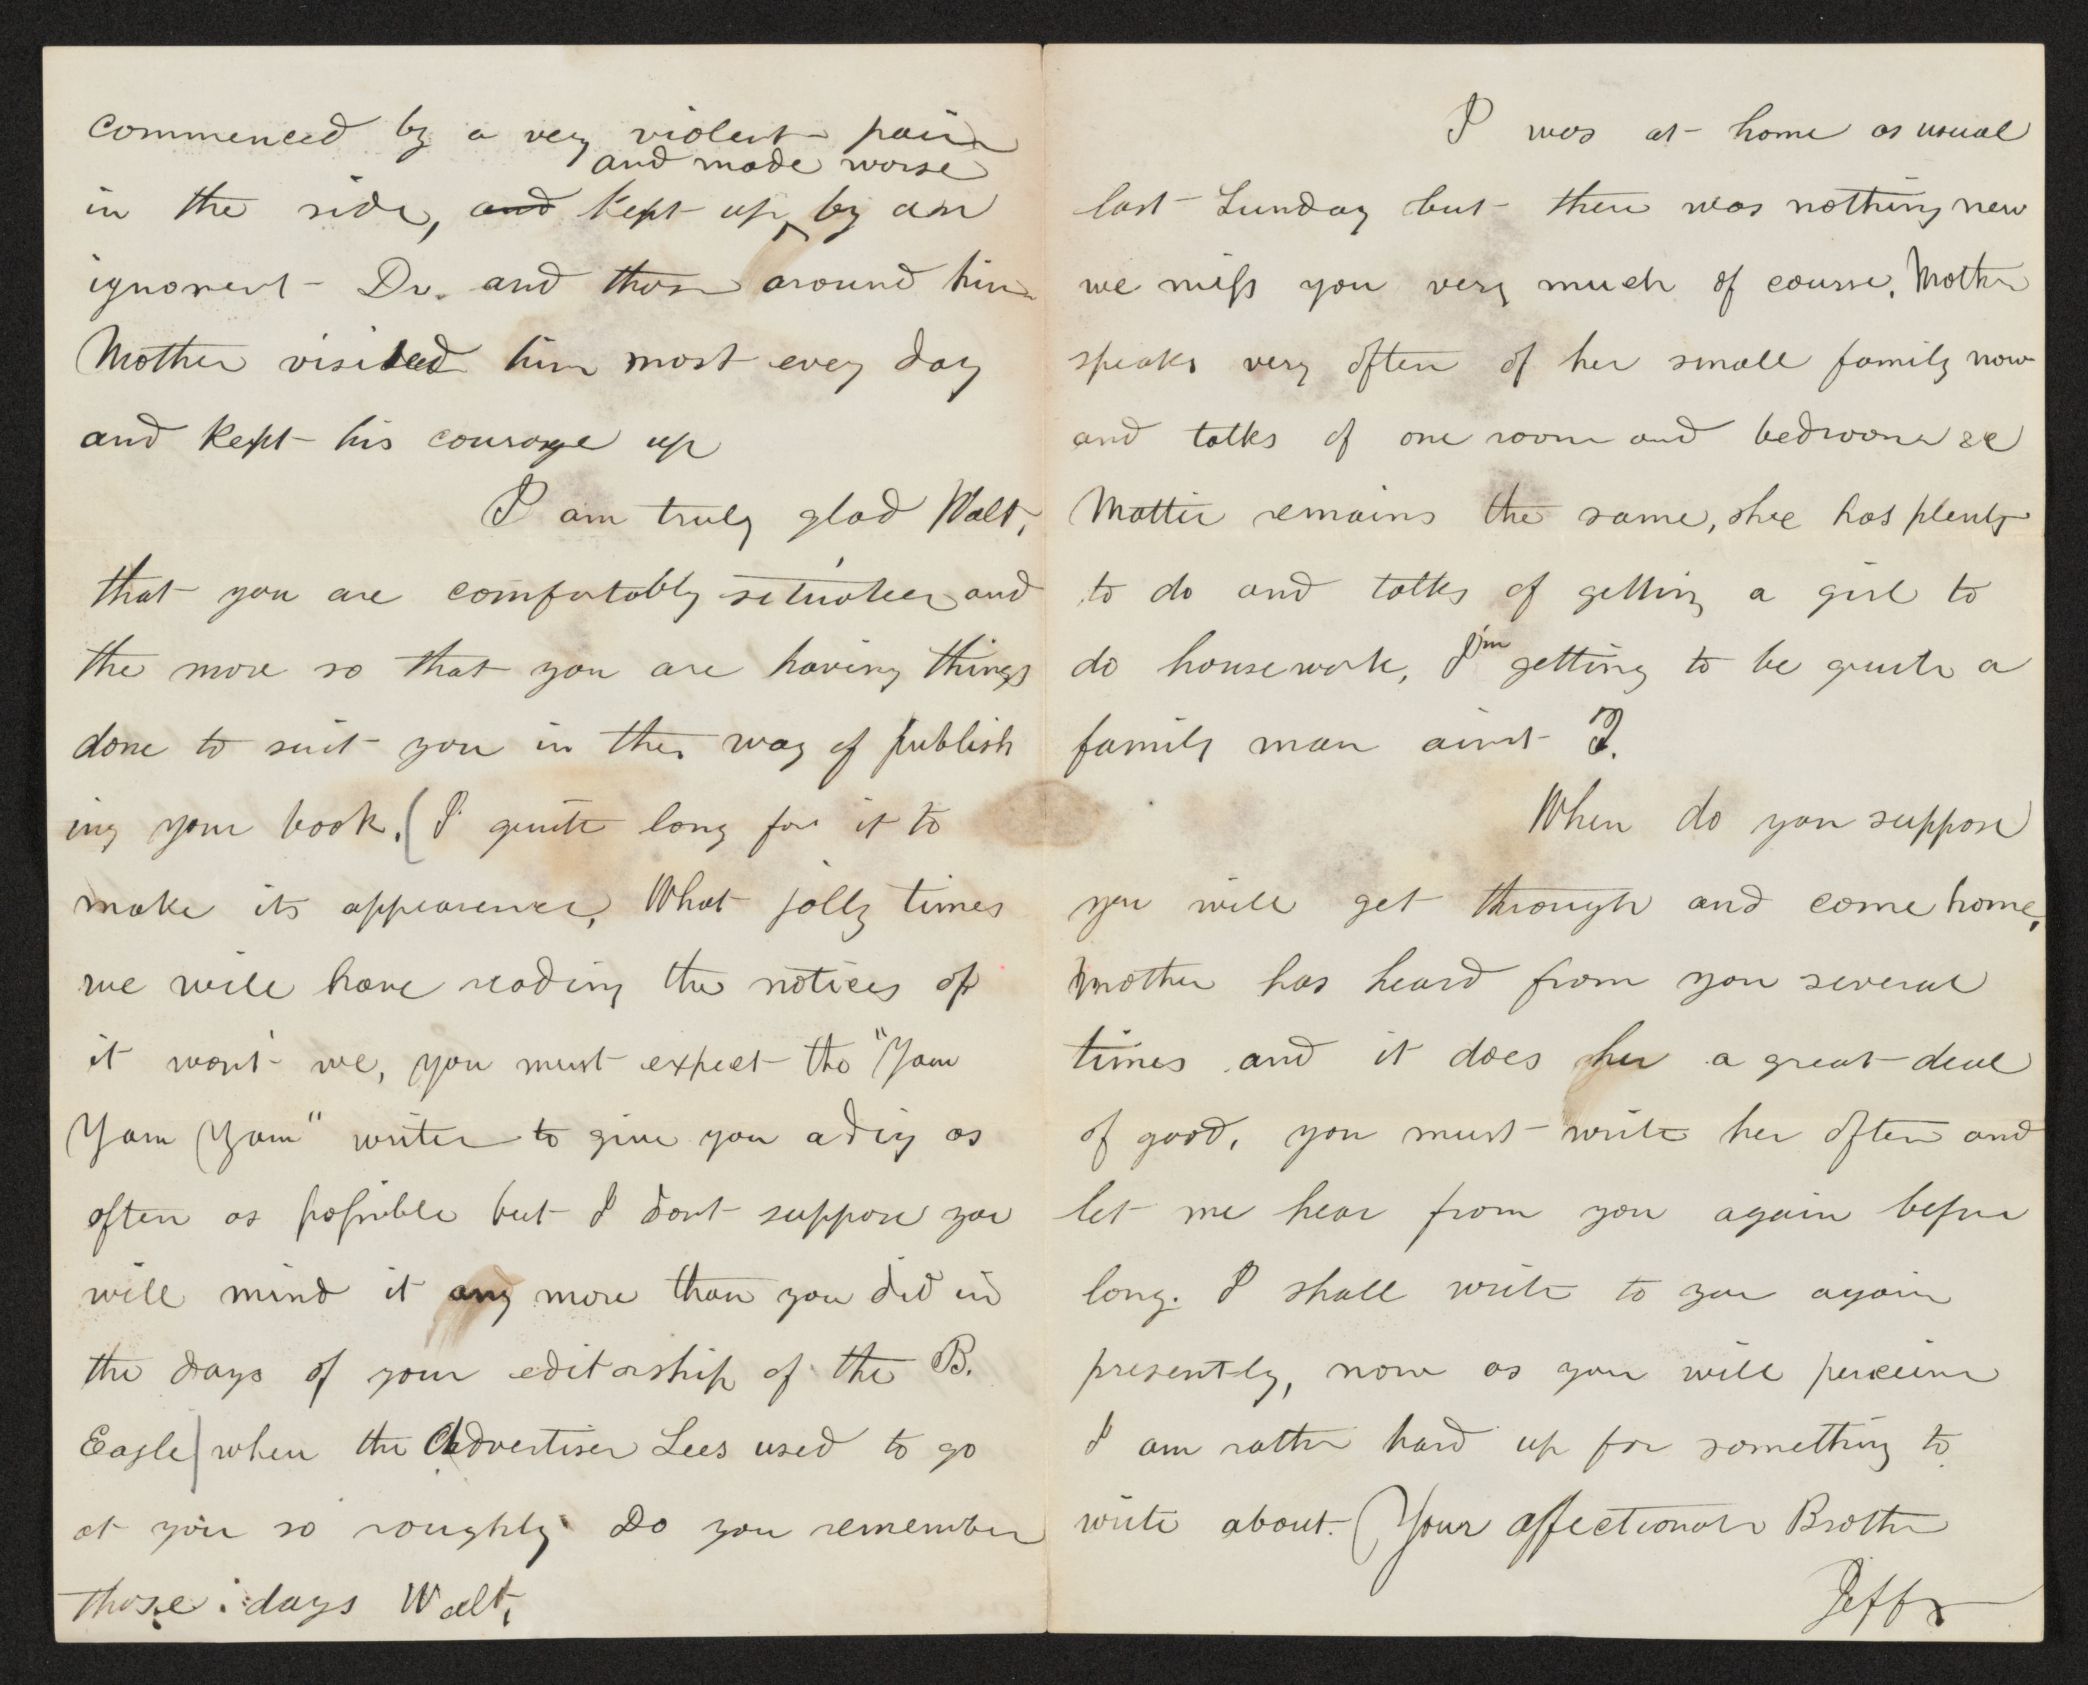 commenced by a very violent pain
and made worse
in the side, and kept up by an
ignorent Dr. and those around him
Mother visited him most every day
and kept his courage up
I am truly glad Walt,
that you are comfortably situated and
the more so that you are having things
done to suit you in the way of publish
ing your book. (I quite long for it to
make its appearence, What jolly times
we will have reading the notices of
it won't we, you must expect the "Yam
Yam Yam" writer to give you a dig as
often as possible but I dont suppose you
will mind it any more than you did in
the days of your editorship of the B.
Eagle) when the Advertiser Lees used to go
at you so roughly. Do you remember
those days Walt,
I was at home as usual
last Sunday but there was nothing new
we miss you very much of course, Mother
speaks very often of her small family now
and talks of one room and bedroom &c
Mattie remains the same, she has plenty
to do and talks of getting a girl to
do housework, I'm getting to be quite a
family man aint I.
When do you suppose
you will get through and come home,
Mother has heard from you several
times and it does her a great deal
of good, you must write her often and
let me hear from you again before
long. I shall write to you again
presently, now as you will perceive
I am rather hard up for something to
write about. Your affectionate Brother
Jeff